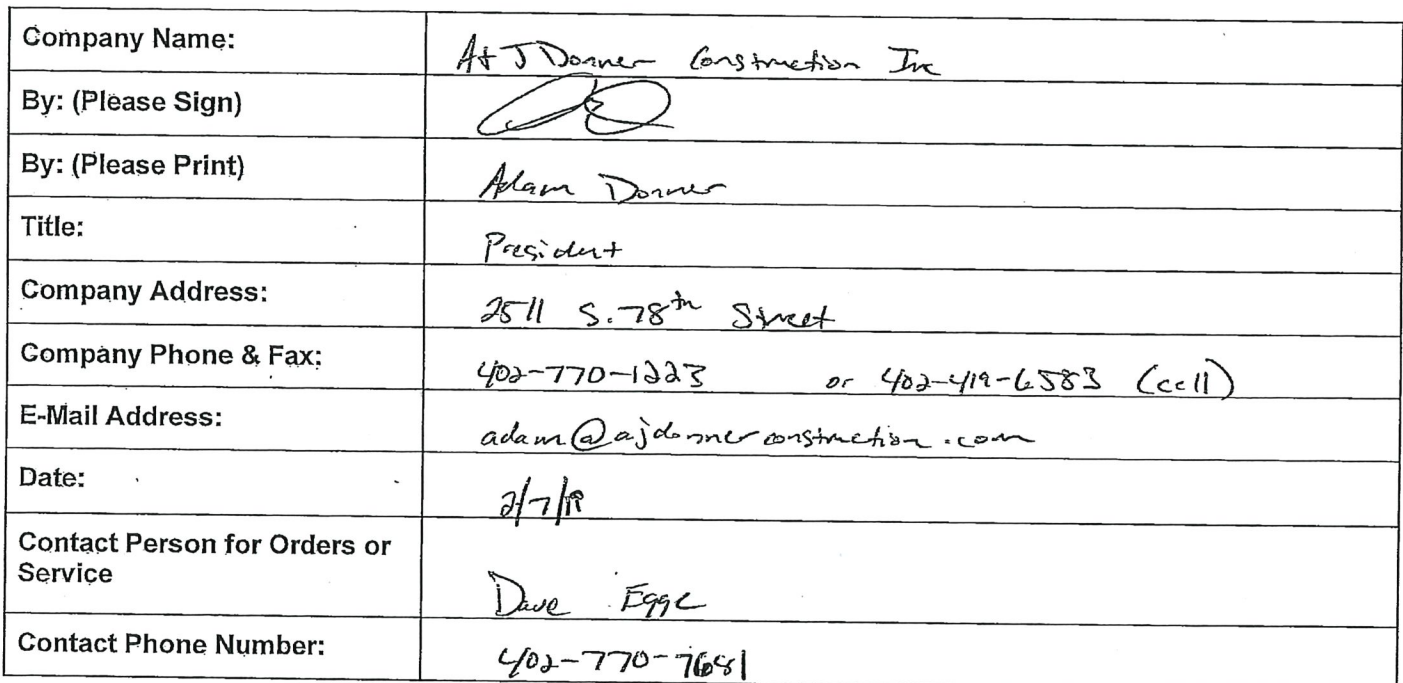 Company Name: A+J Donner Construction Inc
By: (Please Sign)
By: (Please Print) Adam Donner
Title: President
Company Address: 2511 S. 78th Street
Company Phone & Fax: 402-770-1223 or 402-419-6583 (cell)
E-Mail Address: adam@ajdonnerconstruction.com
Date: 2/7/19
Contact Person for Orders or
Service Dave Egge
Contact Phone Number: 402-770-7681